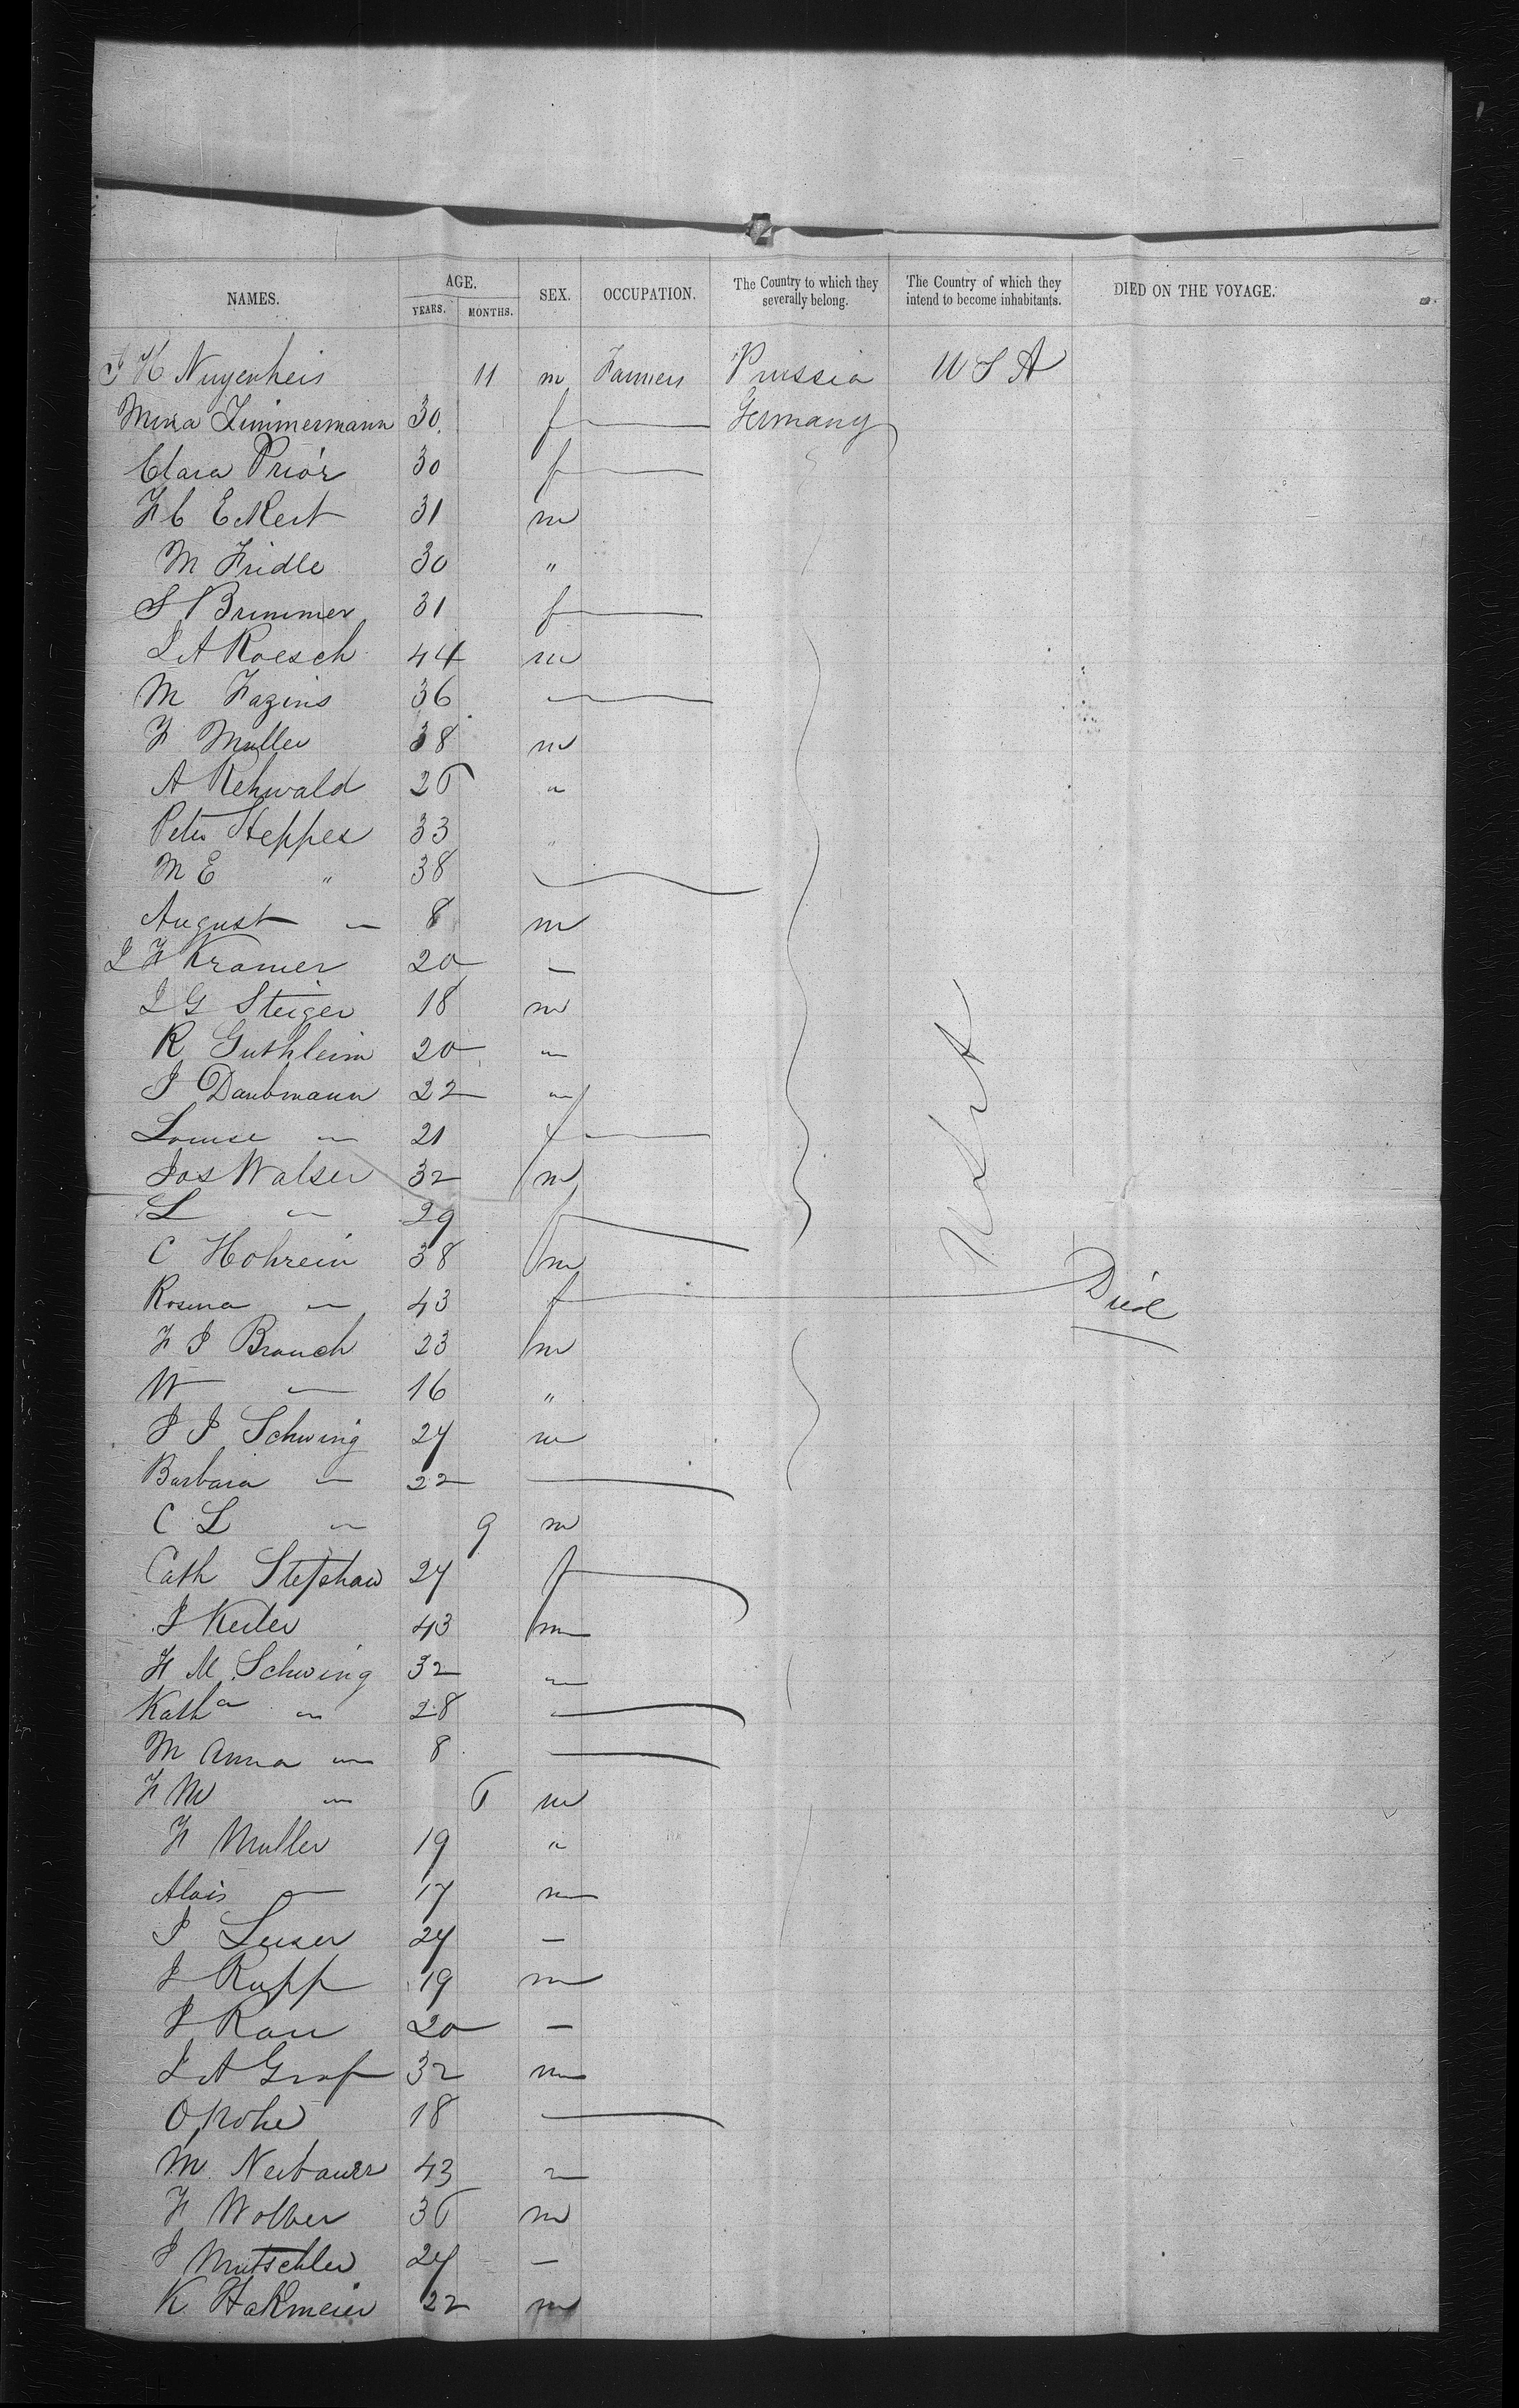 NAMES. AGE. YEARS. MONTHS. SEX. OCCUPATION. The Country to which they severally belong. The Country of which they intend to become inhabitants. DIED ON THE VOYAGE.
J H Nuyenheis 11 m Farmers Prussia U S A
Mina Zimmermann 30 f Germany
Clara Prior 30 f
F C Eckert 31 m
M Fridle 30 "
S Brimmer 31 f
J A Roesch 44 m
M Fazins 36
F Muller 38 m
A Rehwald 26 "
Peter Steppes 33 "
M E " 38
August " 8 m
J F Kramer 20 —
J G Steiger 18 m
R Guthleim 20 "
J Daubmann 22 "
Louise " 21 f
Jos Walser 32 m
L " 29 f
C Hohrein 38 m
Rosina " 43 f Died
F J Brauch 23 m
W " 16 "
J J Schwing 27 m
Barbara " 22
C L " 9 m
Cath Stephan 27 f
J Keiler 43 m
F M Schwing 32 "
Kath a " 28
M Anna " 8
F M " 6 m
F Muller 19 "
Alois " 17 m
J Leiser 27 —
J Rupp 19 m
J Rau 20 —
J A Graf 32 m
O Rohe 18
M Neubauer 43 "
F Wolber 36 m
J Mutschler 27 —
K Hakmeier 22 m
U S A